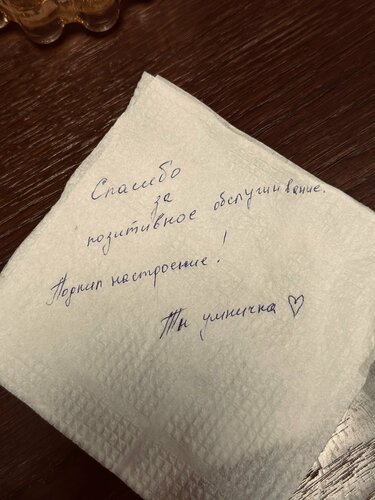 Спасибо
за
позитивное обслуживание.
Поднял настроение!
Ты умничка ♡